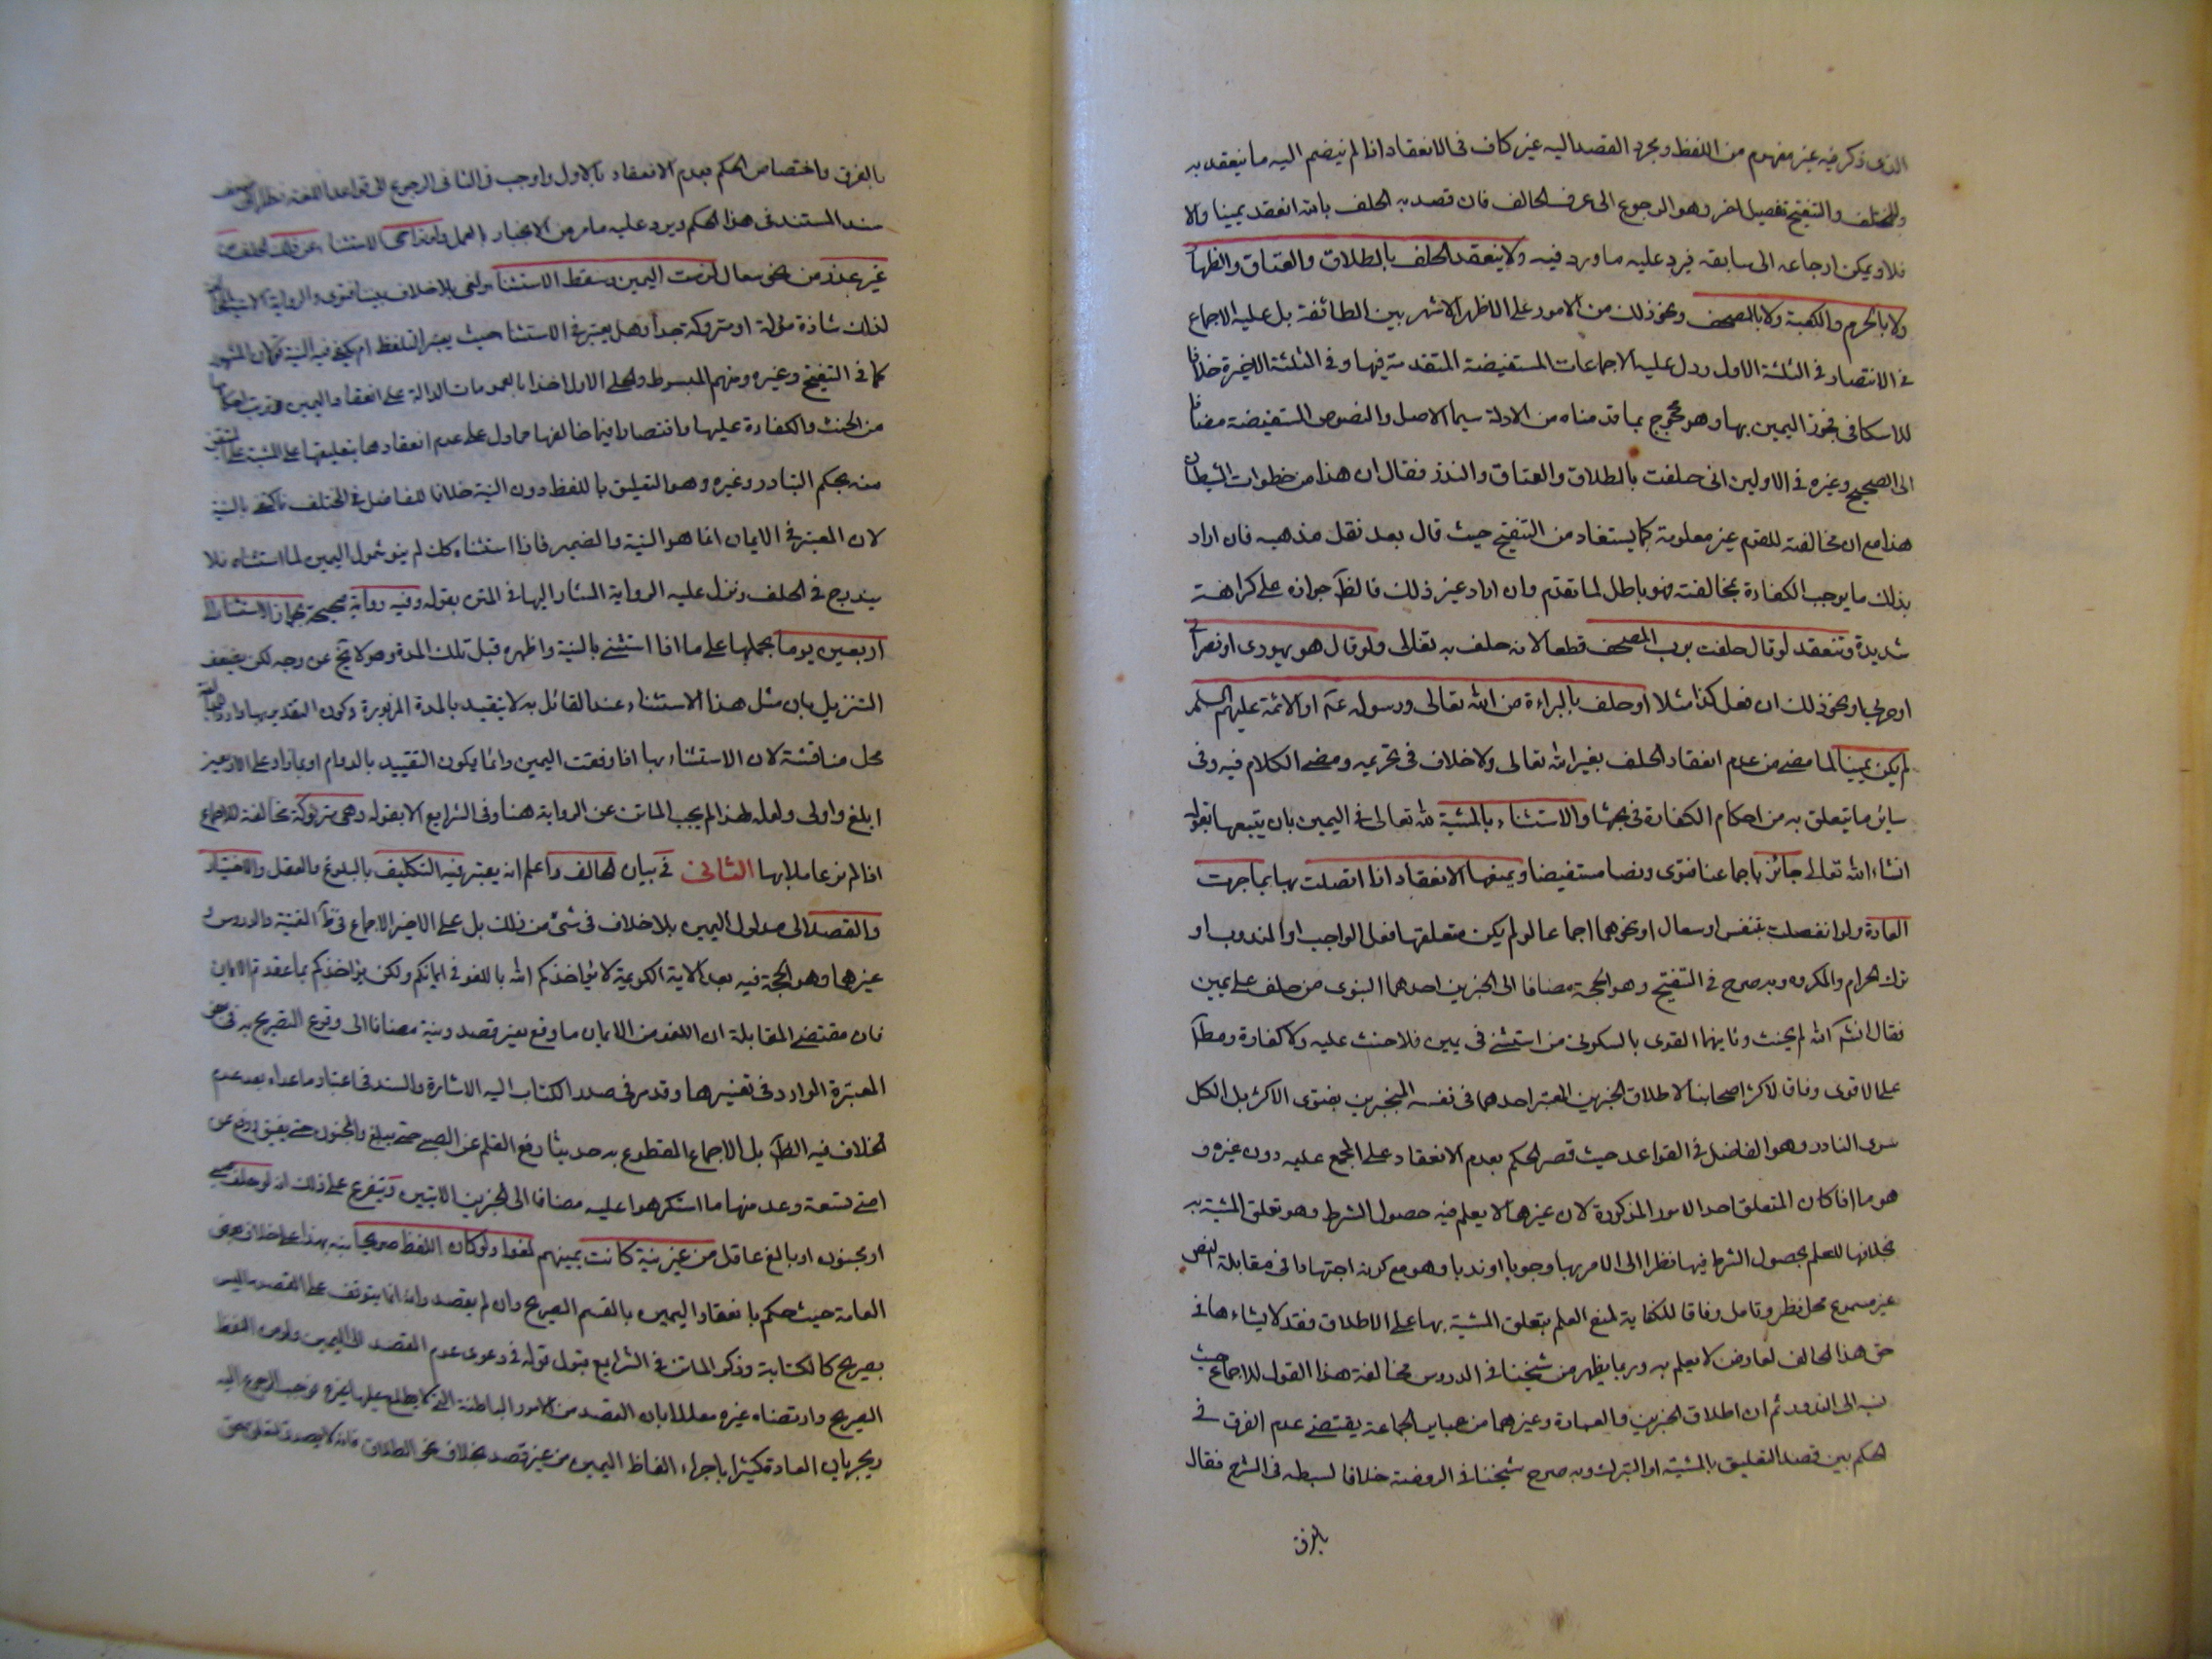 الذى ذكر فيه غير مفهوم من اللفظ ومجرد القصد اليه غير كاف فى الانعقاد اذا لم ينضم اليه ما ينعقد به
وللمختلف والتنقيح تفصيل اخر وهو الرجوع الى عرف الحالف فان قصد به الحلف بالله انعقد يمينا والا
فلا ويمكن ارجاعه الى سابقه فيرد عليه ما ورد فيه ولا ينعقد الحلف بالطلاق والعتاق والظهار
ولا بالحرم والكعبة ولا بالمصحف ونحو ذلك من الامور على الاظهر الاشهر بين الطائفة بل عليه الاجماع
فى الانتصار فى الثلثة الاول ودل عليه الاجماعات المستفيضة المتقدمة فيها وفى الثلثة الاخيرة خلافا
للاسكافى فجوز اليمين بها وهو محجوج بما قدمناه من الادلة سيما الاصل والنصوص المستفيضة مضافا
الى الصحيح وغيره فى الاولين انى حلفت بالطلاق والعتاق والنذر فقال ان هذا من خطوات الشيطان
هذا مع ان مخالفته للقوم غير معلومة كما يستفاد من التنقيح حيث قال بعد نقل مذهبه فان اراد
بذلك ما يوجب الكفارة بمخالفته فهو باطل لما تقدم وان اراد غير ذلك فالظ جوازه على كراهة
شديدة وتنعقد لو قال حلفت برب المصحف قطعا لانه حلف به تعالى ولو قال هو يهودى او نصرانى
او حربى او نحو ذلك ان فعل كذا مثلا او حلف بالبراءة من الله تعالى ورسوله ص او الائمة عليهم السلم
لم يكن يمينا لما مضى من عدم انعقاد الحلف بغير الله تعالى ولا خلاف فى تحريمه ومضى الكلام فيه وفى
سائر ما يتعلق به من احكام الكفارة فى بحثها والاستثناء بالمشية لله تعالى فى اليمين بان يتبعها بقوله
انشاء الله تعالى جائز باجماعنا فتوى ونصا مستفيضا ويمنعها الانعقاد اذا اتصلت بها بما جرت
العادة ولو انفصلت بتنفس او سعال او نحوهما اجماعا لو لم يكن متعلقها فعل الواجب او المندوب او
ترك الحرام والمكروه وبه صرح فى التنقيح وهو الحجة مضافا الى الخبرين احدهما النبوى من حلف على يمين
فقال انشآء الله لم يحنث وثانيهما القوى بالسكونى من استثنى فى يمين فلا حنث عليه ولا كفارة ومطلقا
على الاقوى وفاقا لاكثر اصحابنا لاطلاق الخبرين المعتبر احدهما فى نفسه المنجبرين بفتوى الاكثر بل الكل
سوى النادر وهو الفاضل فى القواعد حيث قصر الحكم بعدم الانعقاد على المجمع عليه دون غيره و
هو ما اذا كان المتعلق احد الامور المذكورة لان غيرها لا يعلم فيه حصول الشرط وهو تعلق المشية به
بخلافها للعلم بحصول الشرط فيها نظرا الى الامر بها وجوبا او ندبا وهو مع كونه اجتهادا فى مقابلة النص
غير مسموع محل نظر وتامل وفاقا للكفاية لمنع العلم بتعلق المشية بها على الاطلاق فقد لا يشاءها فى
حق هذا الحالف لعارض لا يعلم به وربما يظهر من شيخنا فى الدروس مخالفة هذا القول للاجماع حيث
نسبه الى الندور ثم ان اطلاق الخبرين والعبارة وغيرهما من عباير الجماعة يقتضى عدم الفرق فى
الحكم بين قصد التعليق بالمشية او التبرك وبه صرح شيخنا فى الروضة خلافا لسبطه فى الشرح فقال
بالفرق
بالفرق واختصاص الحكم بعدم الانعقاد بالاول واوجب فى الثانى الرجوع الى قواعد اللغة نظرا الى ضعف
سند المستند فى هذا الحكم ويرد عليه ما مر من الانجبار بالعمل ولو تراخى الاستثنا عن ذلك الحلف من
غير عذر من نحو سعال لزمت اليمين وسقط الاستثنا ولغى بلا خلاف بيننا فتوى والرواية الاتية
لذلك شاذة مؤلة او متروكة جدا وهل يعتبر فى الاستثنا حيث يعتبر التلفظ ام يكفى فيه النية قولان المشهور
كما فى التنقيح وغيره ومنهم المبسوط والحلى الاول اخذا بالعمومات الدالة على انعقاد اليمين وترتب احكامها
من الحنث والكفارة عليها واقتصارا فيما خالفها مما دل على عدم انعقادها بتعليقها على المشية على المتيقن
منه بحكم التبادر وغيره وهو التعليق باللفظ دون النية خلافا للفاضل فى المختلف فاكتفى بالنية
لان المعتبر فى الايمان انما هو النية والضمير فاذا استثناه كك لم ينو شمول اليمين لما استثناه فلا
يندرج فى الحلف ونزل عليه الرواية المشار اليها فى المتن بقوله وفيه رواية صحيحة بجواز الاستثنا الى
اربعين يوما بحملها على ما اذا استثنى بالنية واظهره قبل تلك المدة وهو لا يخ عن وجه لكن يضعف
التنزيل بان مثل هذا الاستثناء عند القائل به لا يتقيد بالمدة المزبورة وكون التقدير بها وارد للمبالغة
محل مناقشة لان الاستثناء بها اذا وقعت اليمين دائما يكون التقييد بالدوام او بما زاد على الاربعين
ابلغ واولى ولعله لهذا لم يجب الماتن عن الرواية هنا وفى الشرايع الا بقوله وهى متروكة مخالفة للاجماع
اذا لم نر عاملا بها الثانى فى بيان الحالف واعلم انه يعتبر فيه التكليف بالبلوغ والعقل والاختيار
والقصد الى مدلول اليمين بلا خلاف فى شئ من ذلك بل على الاخير الاجماع فى ظ الغنية والدروس و
غيرهما وهو الحجة فيه بعد الاية الكريمة لا يؤاخذكم الله باللغو فى ايمانكم ولكن يؤاخذكم بما عقدتم الايمان
فان مقتضى المقابلة ان اللغو من الايمان ما وقع بغير قصد ونية مضافا الى وقوع التصريح به فى النصوص
المعتبرة الواردة فى تفسيرها وقد مر فى صدر الكتاب اليه الاشارة والسند فى اعتبار ما عداه بعد عدم
الخلاف فيه الظ بل الاجماع المقطوع به حديثا رفع القلم عن الصبى حتى يبلغ والمجنون حتى يفيق ورفع عن
امتى تسعة وعد منها ما استكرهوا عليه مضافا الى الخبرين الاتيين ويتفرع على ذلك انه لو حلف صبى
او مجنون او بالغ عاقل من غير نية كانت يمينهم لغوا ولو كان اللفظ صريحا ينبه بهذا على خلاف بعض
العامة حيث حكم بانعقاد اليمين بالقسم الصريح وان لم يقصد وانه انما يتوقف على القصد ما ليس
بصريح كالكناية وذكر الماتن فى الشرايع قبول قوله فى دعوى عدم القصد الى اليمين ولو من اللفظ
الصريح وارتضاه غيره معللا بان القصد من الامور الباطنة التى لا يطلع عليها غيره فوجب الرجوع اليه
وبجريان العادة كثيرا باجراء الفاظ اليمين من غير قصد بخلاف نحو الطلاق فانه لا يصدق لتعلق حق